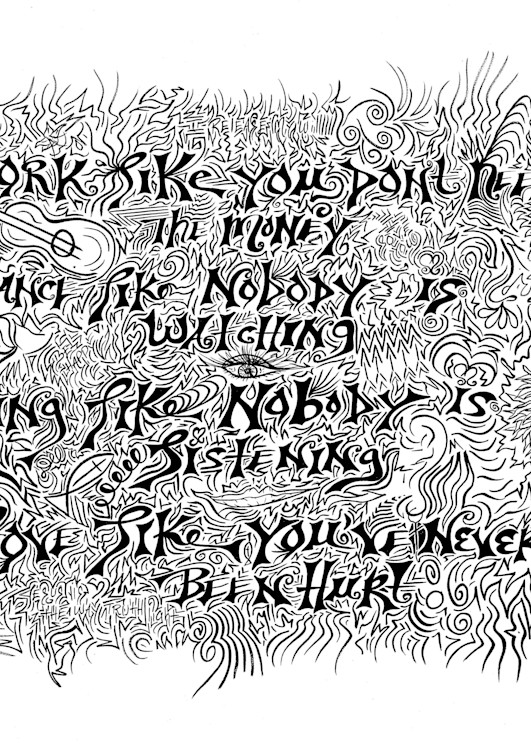 ORK Like you DONt NEE
THE MONEY
ANCE Like NoboDy iS
WATCHING
ng Like NoboDy iS
LiSTENiNg
OVE Like You'VE NEVER
BEEN HURt